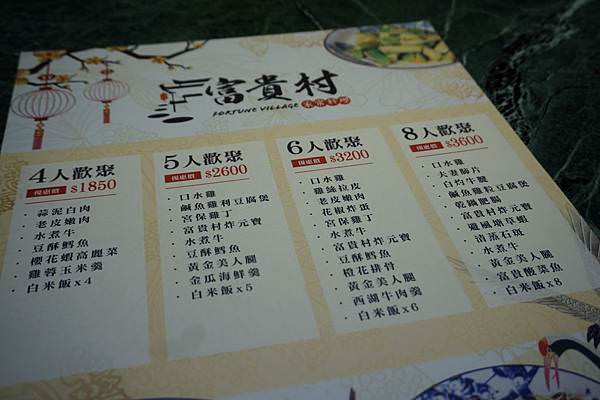 富貴村
FORTUNE VILLAGE
4人歡聚
優惠價 $1850
· 蒜泥白肉
· 老皮嫩肉
· 水煮牛
· 豆酥鱈魚
· 櫻花蝦高麗菜
· 雞蓉玉米羹
· 白米飯x4
5人歡聚
優惠價 $2600
· 口水雞
· 鹹魚雞利豆腐煲
· 宮保雞丁
· 富貴村炸元寶
· 水煮牛
· 豆酥鱈魚
· 黃金美人腿
· 金瓜海鮮羹
· 白米飯x5
6人歡聚
優惠價 $3200
· 口水雞
· 雞絲拉皮
· 老皮嫩肉
· 花椒炸蛋
· 水煮牛
· 富貴村炸元寶
· 豆酥鱈魚
· 橙花排骨
· 黃金美人腿
· 西湖牛肉羹
· 白米飯x6
8人歡聚
優惠價 $3600
· 口水雞
· 夫妻肺片
· 白灼牛腱
· 鹹魚雞粒豆腐煲
· 乾鍋肥腸
· 富貴村炸元寶
· 避風塘草蝦
· 清蒸石斑
· 水煮牛
· 黃金美人腿
· 富貴酸菜魚
· 白米飯x8